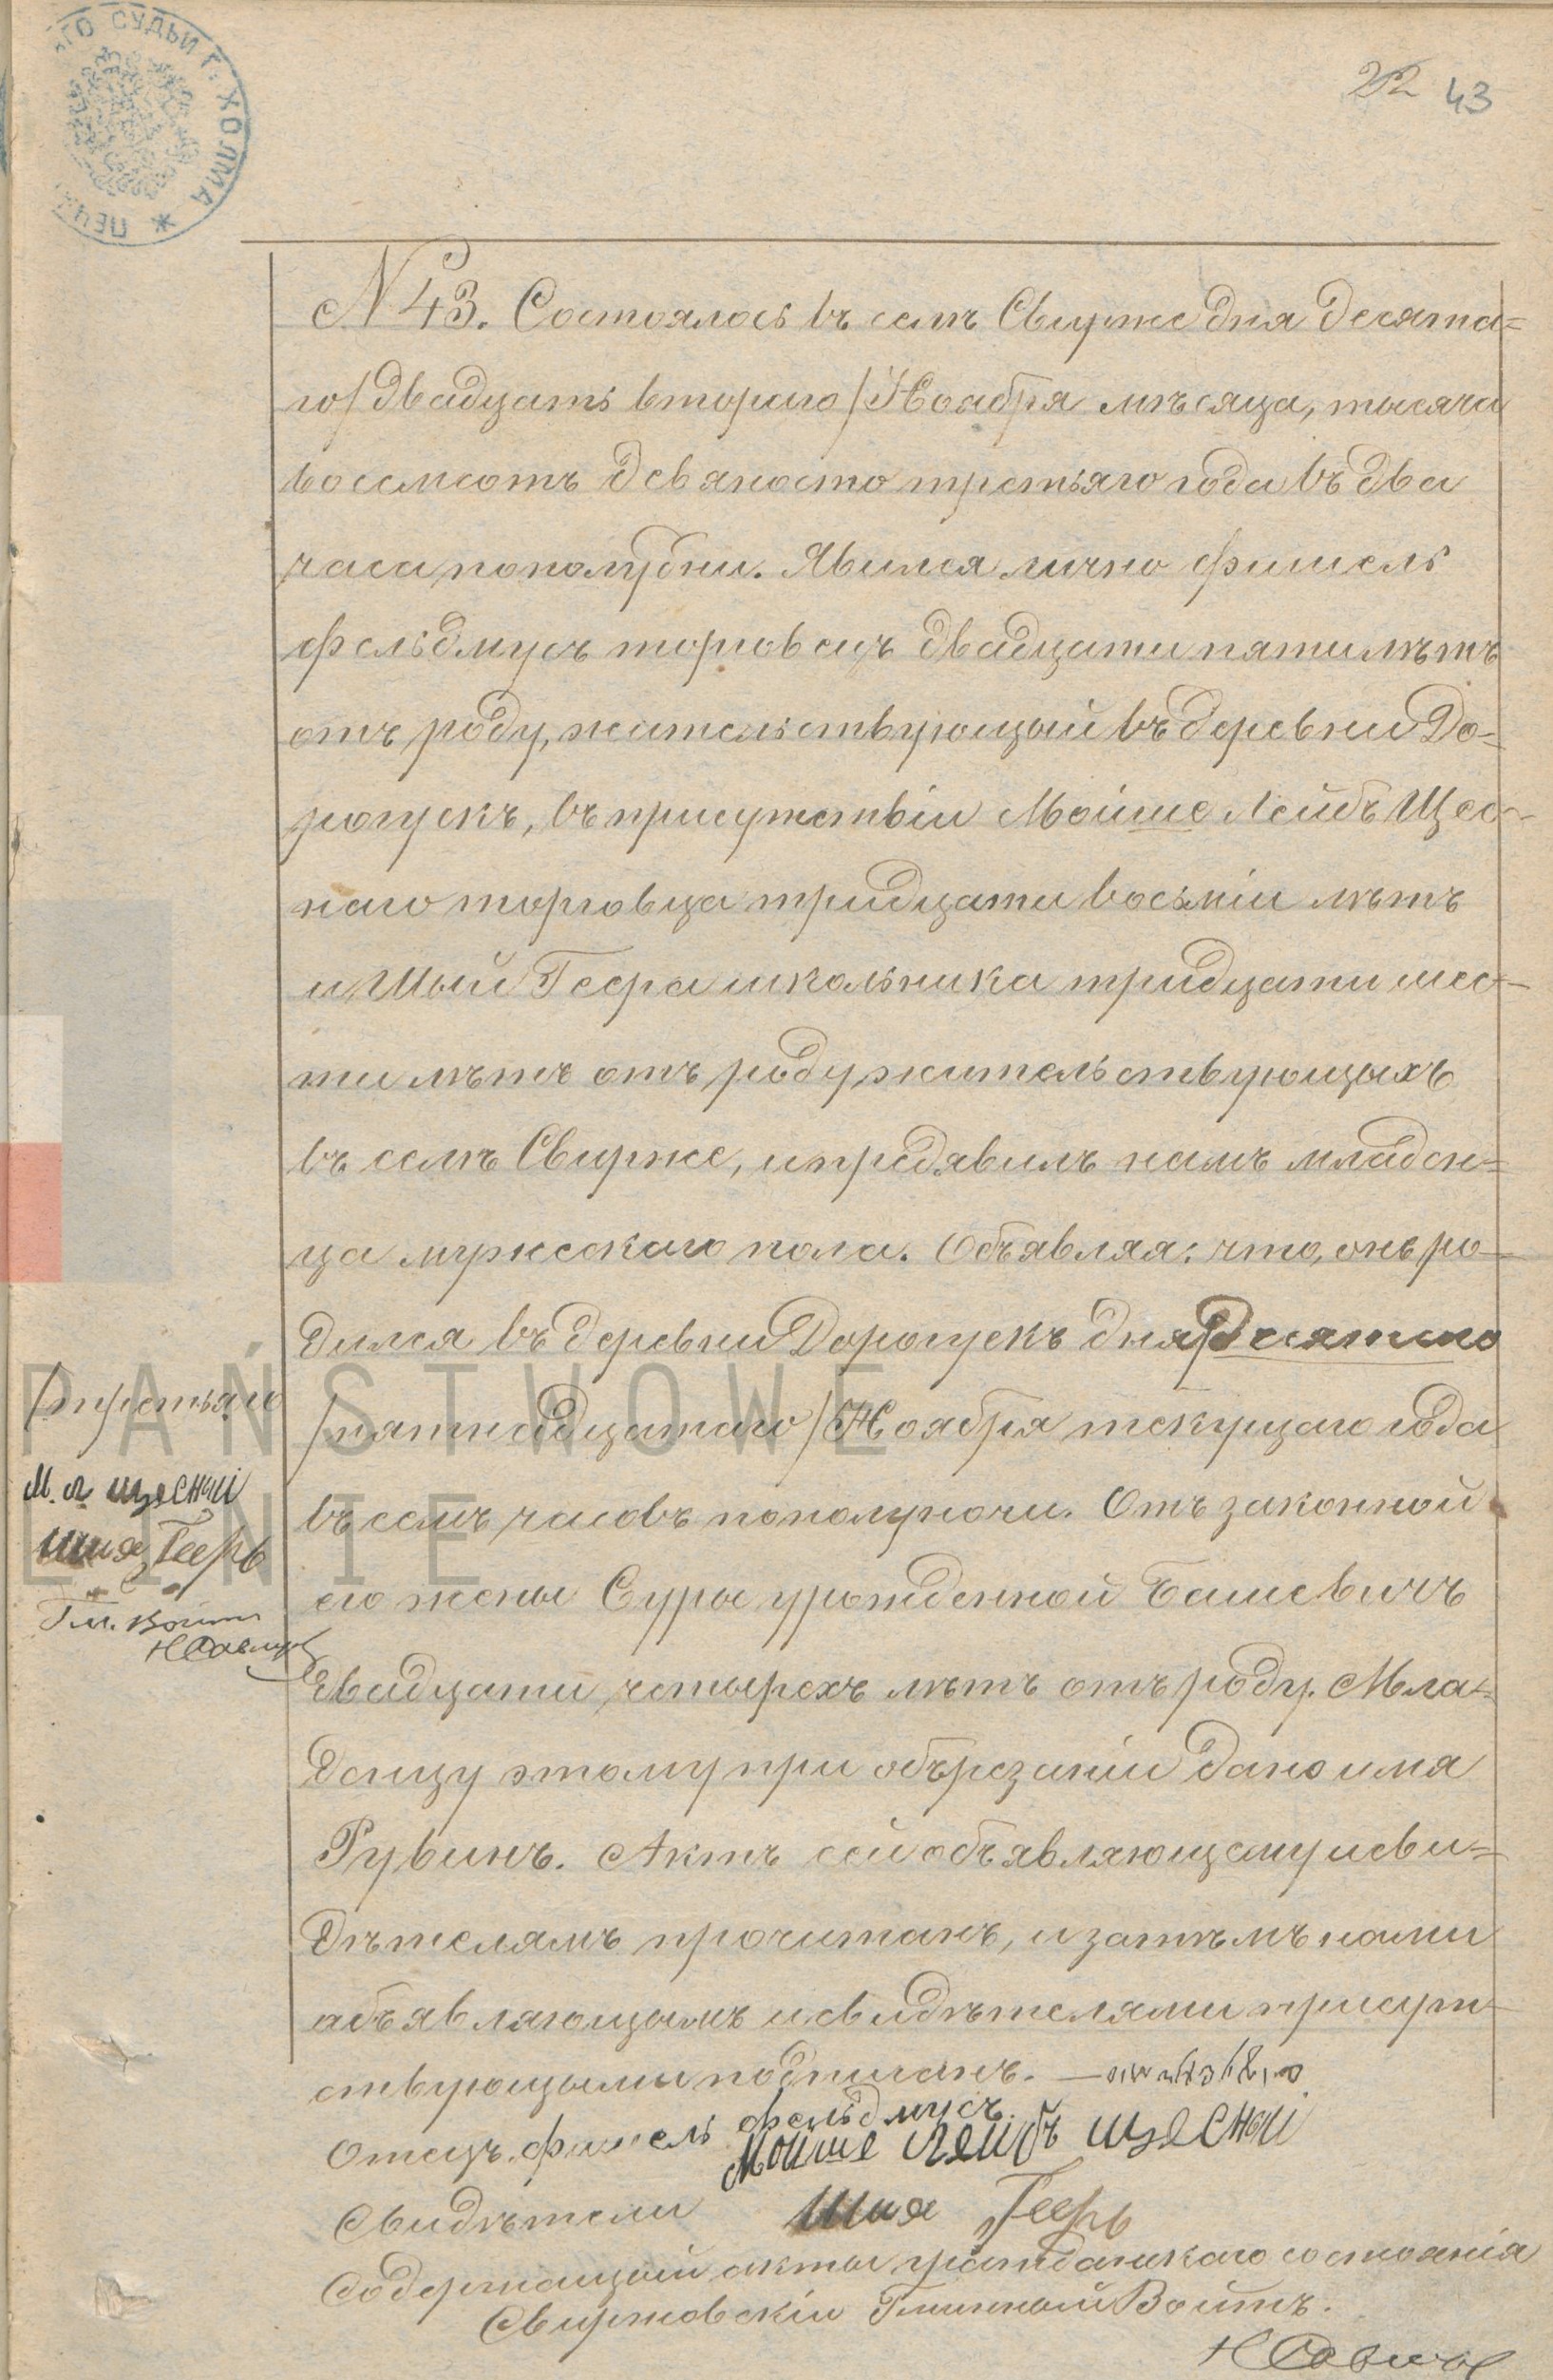 ГО СУДЬИ Г. ХОЛМА * ПЕЧ
22 43
N 43. Состоялось въ селѣ Свирже дня десята=
го/двадцать втораго/Ноября мѣсяца, тысяча
восемсотъ девяносто третьяго года въ два
часа пополудни. Явился лично Фишель
Фельдмусъ торговецъ двадцати пяти лѣтъ
отъ роду, жительствующый въ деревни До=
рогускъ, въ присутствіи Мойше Лейбъ Щес-
наго торговца тридцати восьміи лѣтъ
и Шыи Геера школьника тридцати шес-
ти лѣтъ отъ роду жительствующыхъ
въ селѣ Свирже, и предявилъ намъ младен=
ца мужескаго пола. Объявляя: что, онъ ро-
дился въ деревни Дорогускъ дня десятаго
/третьяго
/пятнадцатаго/Ноября текущаго года
М. Л Щесныі
въ семъ часовъ пополуночи. Отъ законной
Шия Гееръ
его жены Суры урожденной Башевичъ
Гм. Войтъ
двадцати четырехъ лѣтъ отъ роду. Мла=
денцу этому при обърезаніи дано имя
Рувинъ. Актъ сей объявляющему и сви=
дѣтелямъ прочитанъ, и затѣмъ нами
абъявляющымъ и свидѣтелями присут-
ствующыми подписанъ. —
Отецъ. Фишель Фельдмусъ.
Мойше Лейбъ Щесныі
Свидѣтели Шия Гееръ
Содержащый акты гражданскаго состоянія
Свиржовскіи Гминный Войтъ.